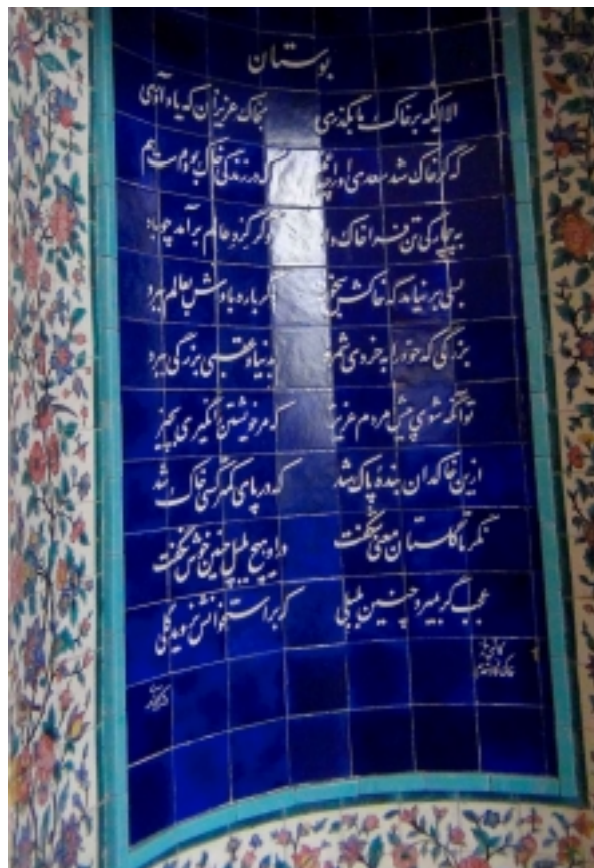 بوستان
الا ایکه بر خاک ما بگذری بخاک عزیزان که یاد آوری
که گر خاک شد سعدی او را که در زندگی خاک بودست هم
به بیچارگی تن فرا خاک وگر گرد عالم برآمد چو باد
بسی برنیاید که خاکش دگر باره بادش بعالم برد
بزرگی که خود را به خردی شمرد بدنیا و عقبی بزرگی ببرد
تو آنگه شوی پیش مردم عزیز که مر خویشتن را نگیری بچیز
ازین خاکدان بندهٔ پاک شد که در پای کمتر کسی خاک شد
نگر تا گلستان معنی شگفت در او هیچ بلبل چنین خوش نگفت
عجب گر بمیرد چنین بلبلی که بر استخوانش نروید گلی